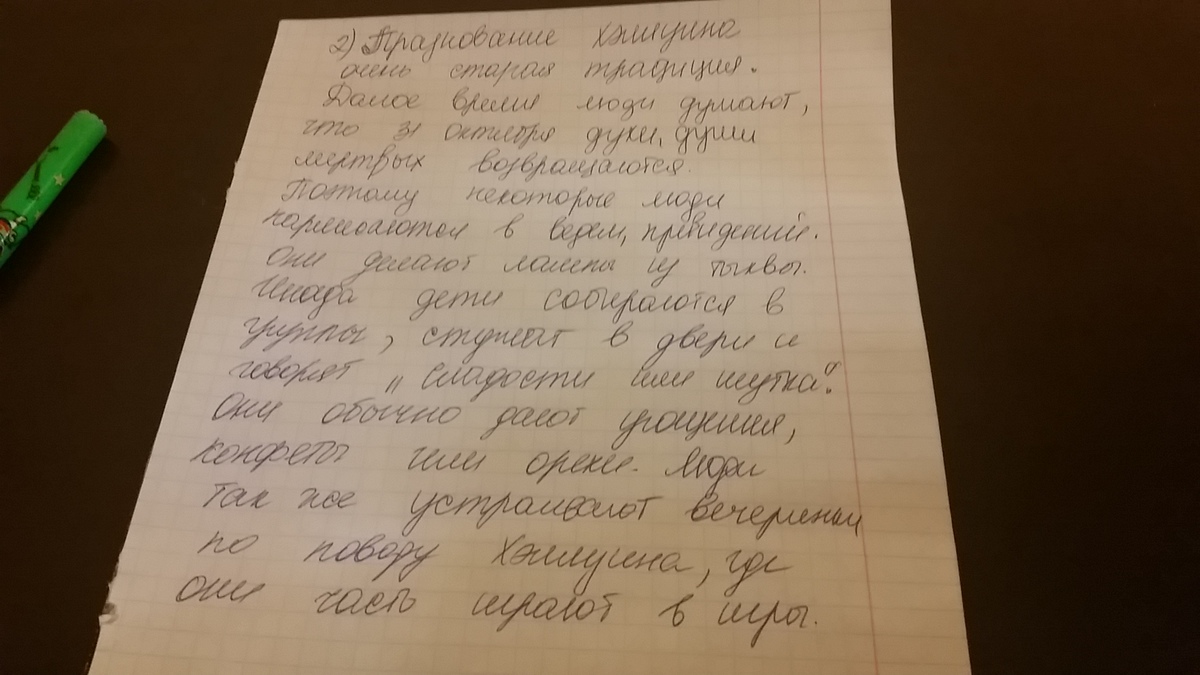 2) Празнование Хэллуина
очень старая традиция.
Далое время люди думают,
что 31 октября духи, души
мертвых возвращаются.
Поэтому некоторые люди
наряжаются в ведем, превидений.
Они делают лампы из тыквы.
Инада дети собираются в
группы, стучат в двери и
говорят „сладости или шутка".
Они обычно дают угощения,
конфеты или орехи. Люди
так же устраивают вечеринки
по поводу Хэллуина, где
они часть играют в игры.